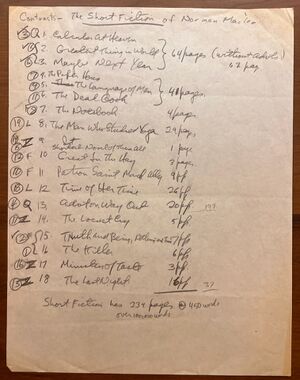 Contracts - The Short Fiction of Norman Mailer
③ Q 1. Calculus at Heaven
2. Greatest Thing in World } 64 pages (without advts)
3. Maybe Next Year 67 pag
4. The Paper House
5. The Language of Men } 48 pages
6. The Dead Gook
7. The Notebook 4 pages
⑲ L 8. The Man Who Studied Yoga 29 pages
Z 9 It Shortest Novel of them all 1 page
F 10 Great In The Hay 3 pages
F 11 Patron Saint Macdougal Alley 9 pp
L 12 Time of Her Time 26 pp
Q 13 Advts on Way Out 20 pp 197
Z 14. The Locust Cry 5 pp
15. Truth and Being, 7 pp
L 16 The Killer 6 pp
Z 17 Ministers of Taste 3 pp
Z 18 The Last Night 16 pp 37
Short Fiction has 234 pages @ 450 words
over 100,000 words